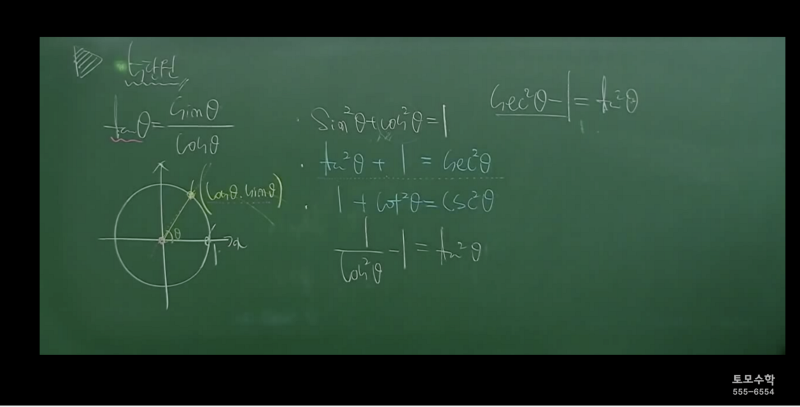 특강편
tanθ = sinθ / cosθ
(cosθ, sinθ)
θ
1
x
· sin²θ + cos²θ = 1
· tan²θ + 1 = sec²θ
· 1 + cot²θ = csc²θ
1 / cos²θ - 1 = tan²θ
sec²θ - 1 = tan²θ
토모수학
555-6554